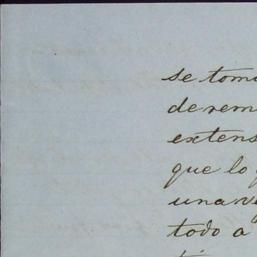 se tom
de rem
extens
que lo
una v
todo a